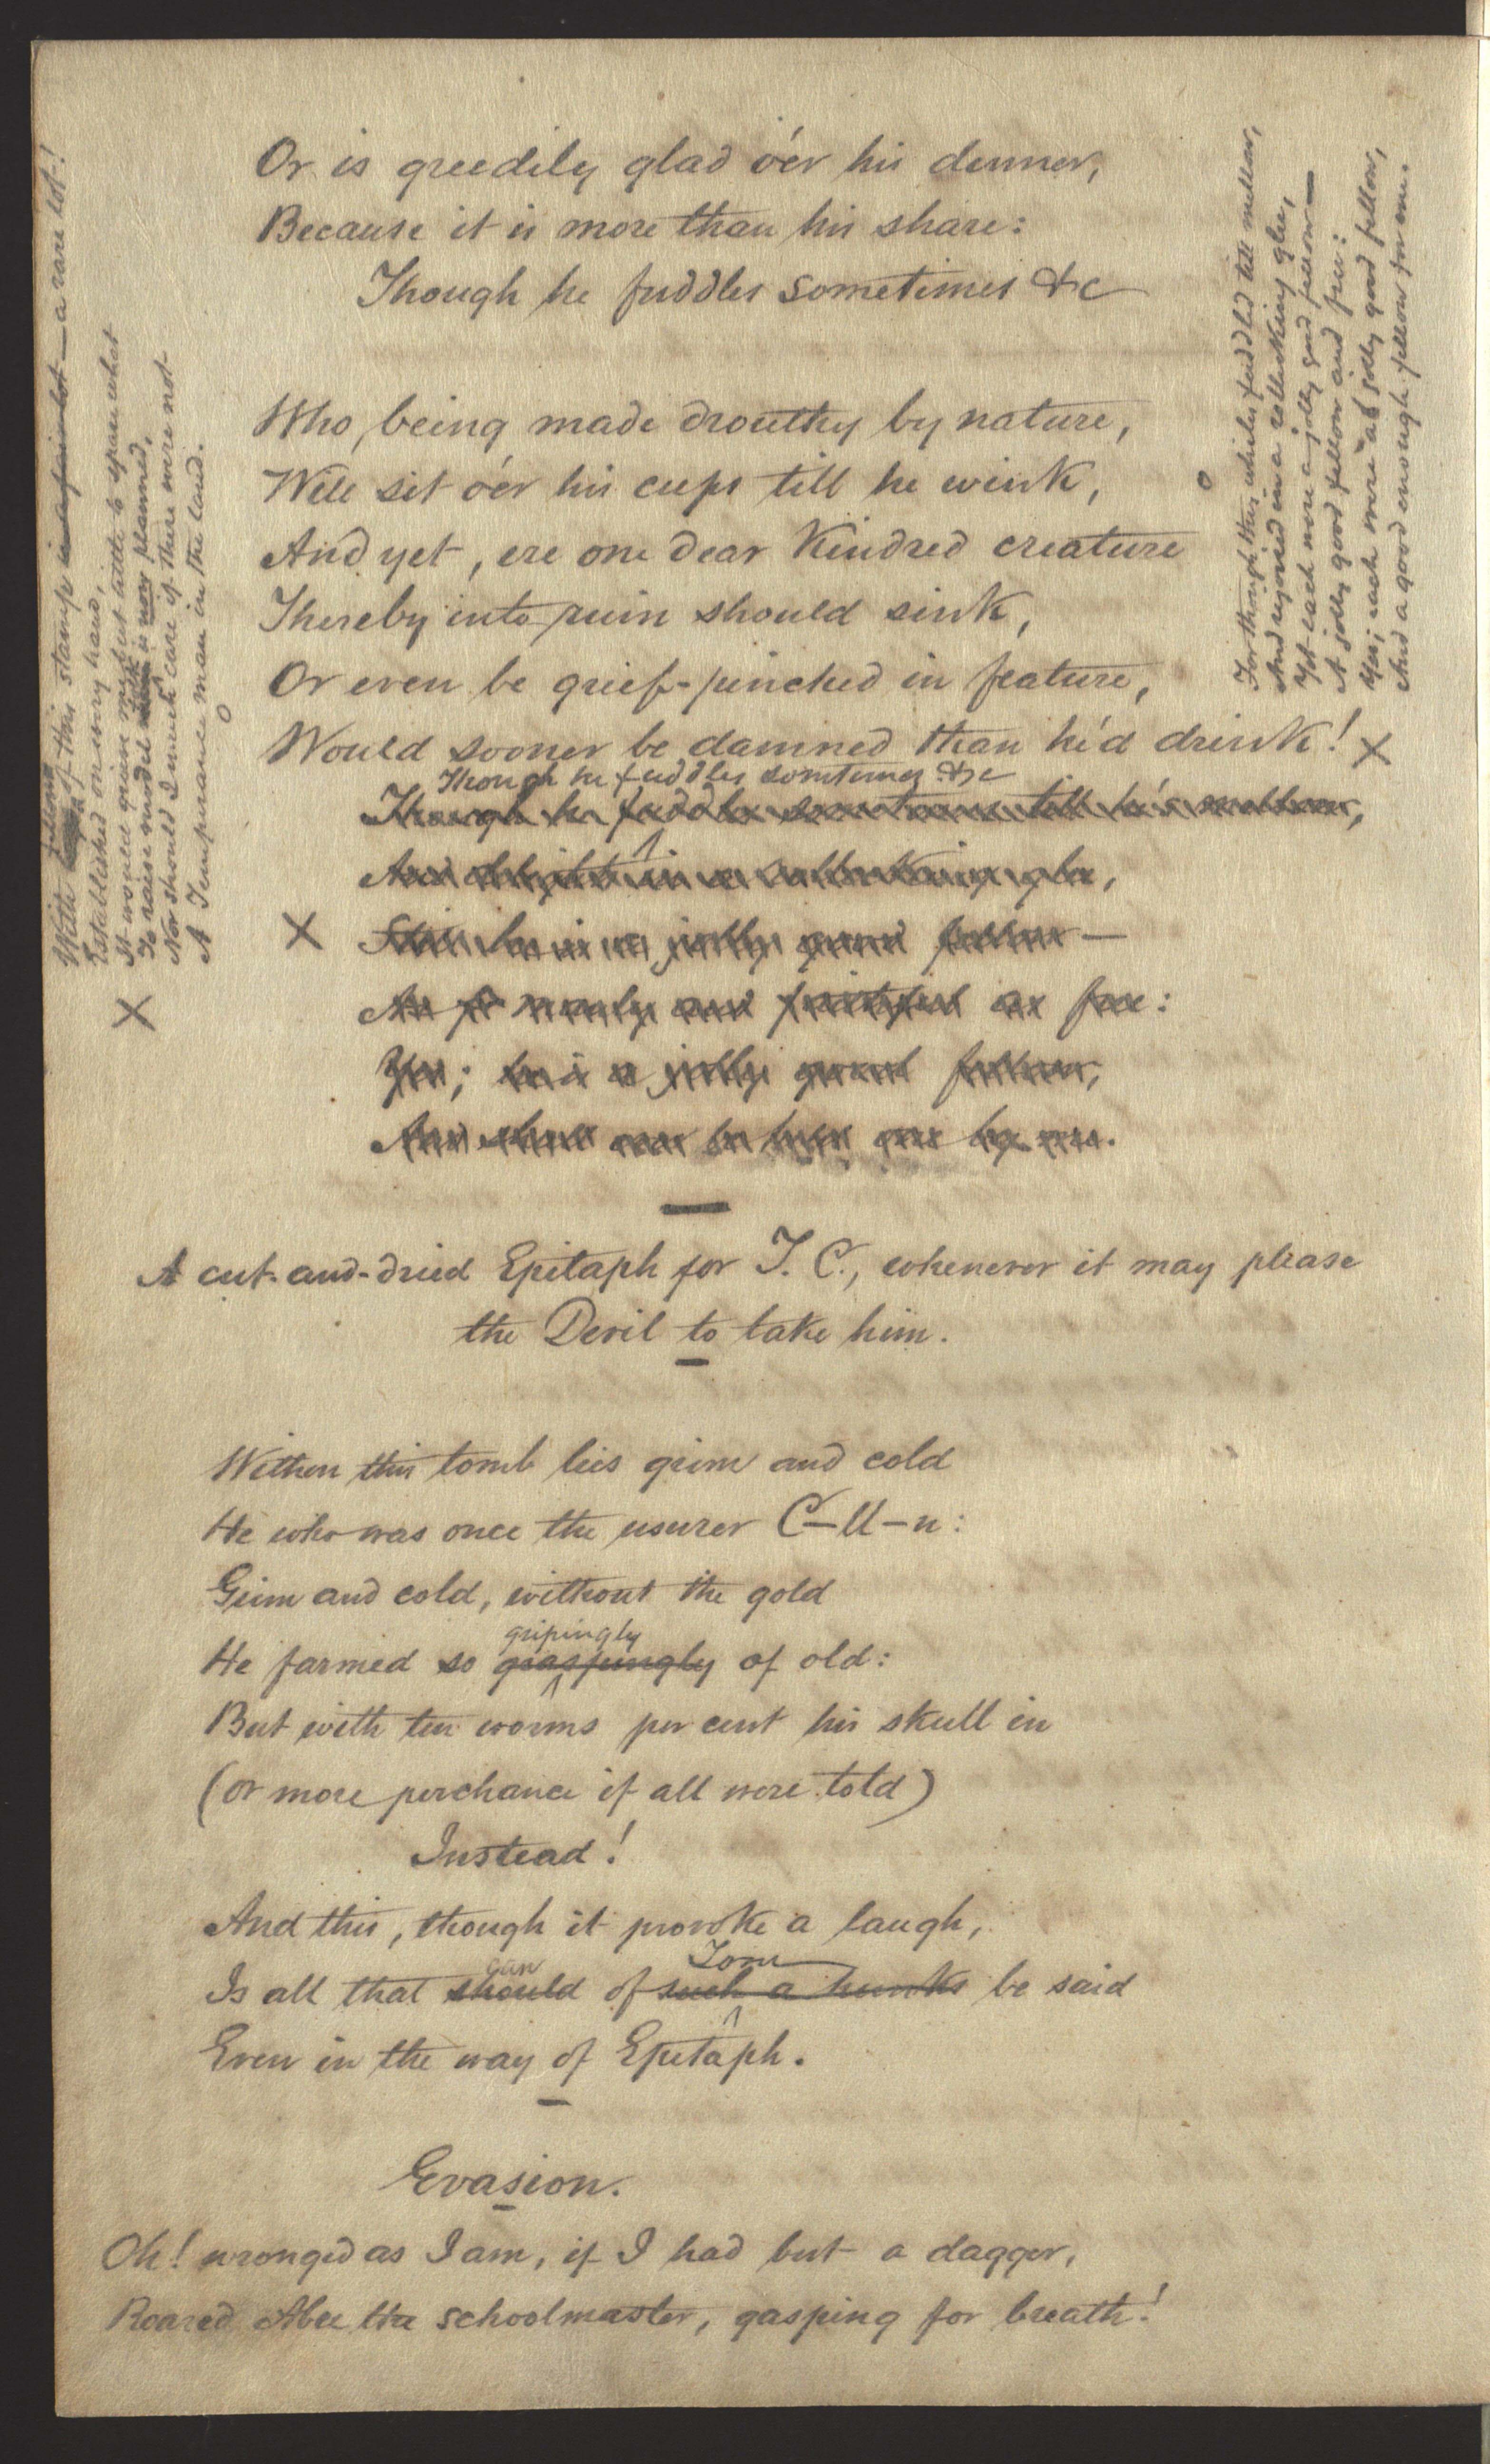 Or is greedily glad o'er his dinner,
Because it is more than his share:
Though he fuddles sometimes &c
Who, being made drouthy by nature,
Will sit o'er his cups till he wink,
And yet, ere one dear kindred creature
Thereby into ruin should sink,
Or even be grief-pinched in feature,
Would sooner be damned than he'd drink! X
Though he fuddles sometimes &c
Though he fuddles sometimes till he's mellow,
And delights in a rollicking glee,
X Still he is a jolly good fellow —
As and faithful as free:
Yes; he is a jolly good fellow,
And shall
A cut-and-dried Epitaph for T. C., whenever it may please
the Devil to take him.
Within this tomb lies grim and cold
He who was once the usurer C—ll—n:
Grim and cold, without the gold
gripingly
He farmed so graspingly of old:
But with ten worms per cent his skull in
(or more perchance if all were told)
Instead!
And this, though it provoke a laugh,
can Tom
Is all that should of such a hunks be said
Even in the way of Epitaph.
Evasion.
Oh! wronged as I am, if I had but a dagger,
Roared Abee the schoolmaster, gasping for breath!
With fellows of this stamp — a rare lot!
Established on every hand,
It would grieve me but little to spare what
To raise model folk is now planned,
Nor should I much care if there were not
A Temperance man in the land.
O
X
For though they whiles fuddled till mellow,
And rejoiced in a rollicking glee,
Yet each were a jolly good fellow —
A jolly good fellow and free:
Yes; each were a jolly good fellow,
And a good enough fellow for me.
O